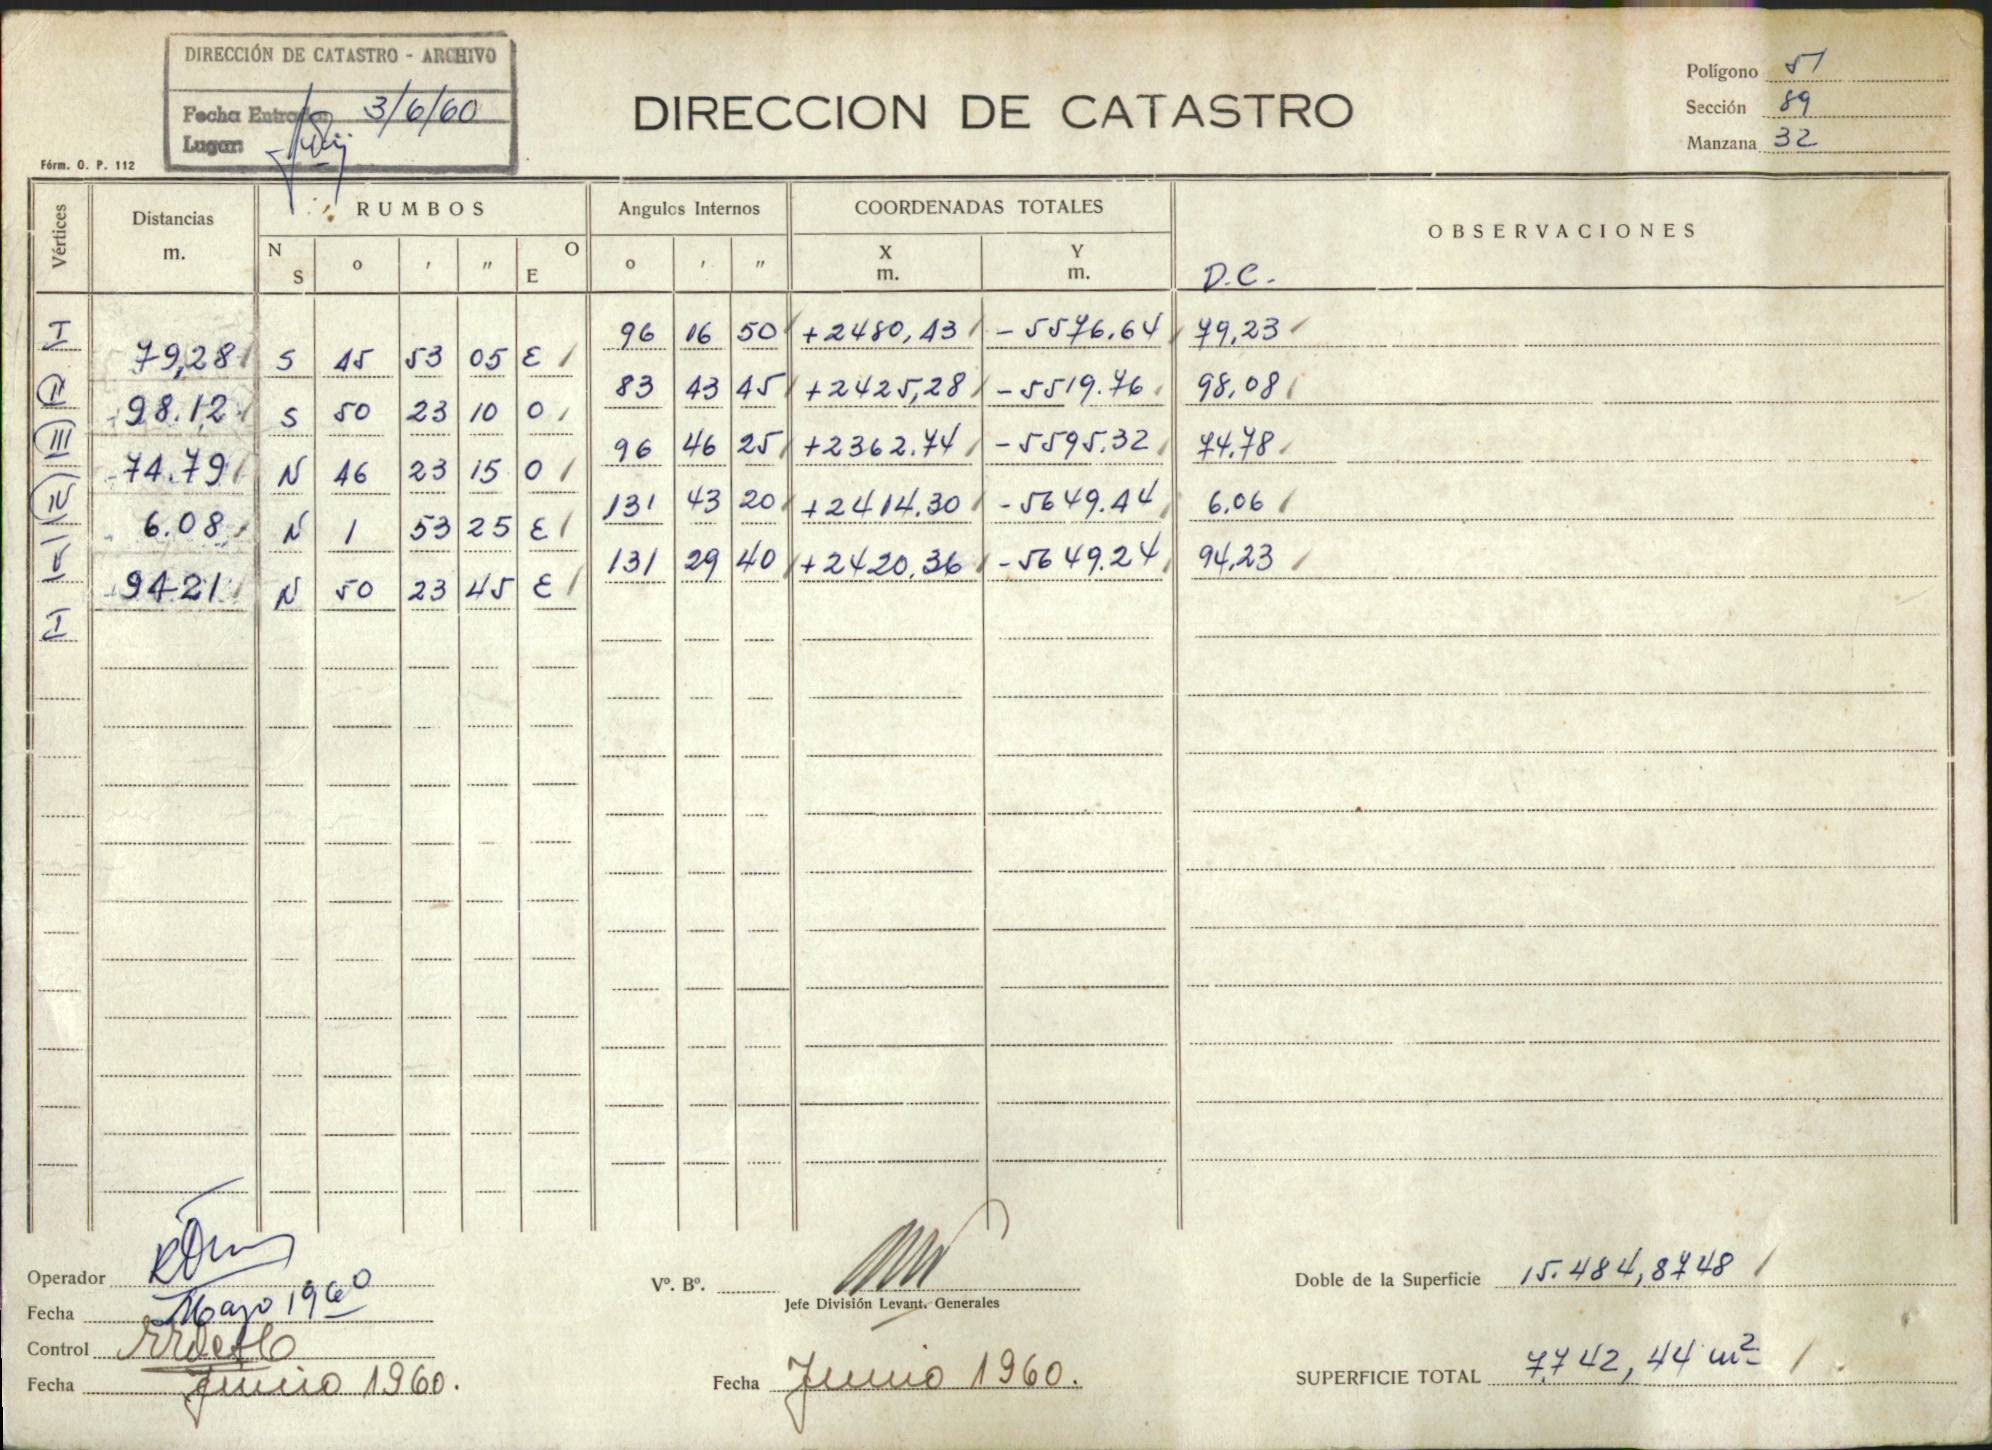 DIRECCIÓN DE CATASTRO - ARCHIVO
Fecha Entrada: 3/6/60
Lugar:
Fórm. O. P. 112
DIRECCION DE CATASTRO
Polígono 51
Sección 89
Manzana 32
Vértices Distancias m. RUMBOS Angulos Internos COORDENADAS TOTALES OBSERVACIONES
N S o ' " O E o ' " X m. Y m. D.C.
I 96 16 50 +2480,43 -5576.64 79,23
79,28 S 45 53 05 E
II 83 43 45 +2425,28 -5519.76 98,08
98.12 S 50 23 10 O
III 96 46 25 +2362.74 -5595.32 74.78
74.79 N 46 23 15 O
IV 131 43 20 +2414.30 -5649.44 6.06
6.08 N 1 53 25 E
V 131 29 40 +2420.36 -5649.24 94,23
94.21 N 50 23 45 E
I
Operador
Fecha Mayo 1960
Control
Fecha Junio 1960.
Vº. Bº.
Jefe División Levant. Generales
Fecha Junio 1960.
Doble de la Superficie 15.484,8748
SUPERFICIE TOTAL 7.742,44 m²